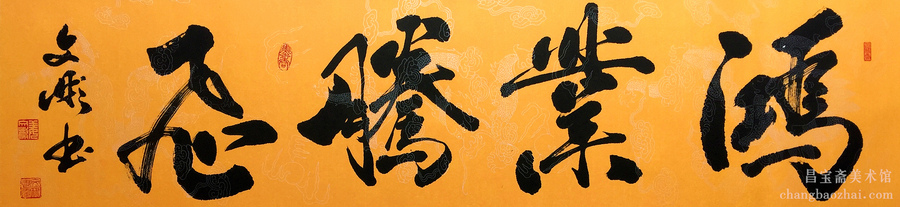 鴻業騰飛
文彬書
昌宝斋美术馆
changbaozhai.com